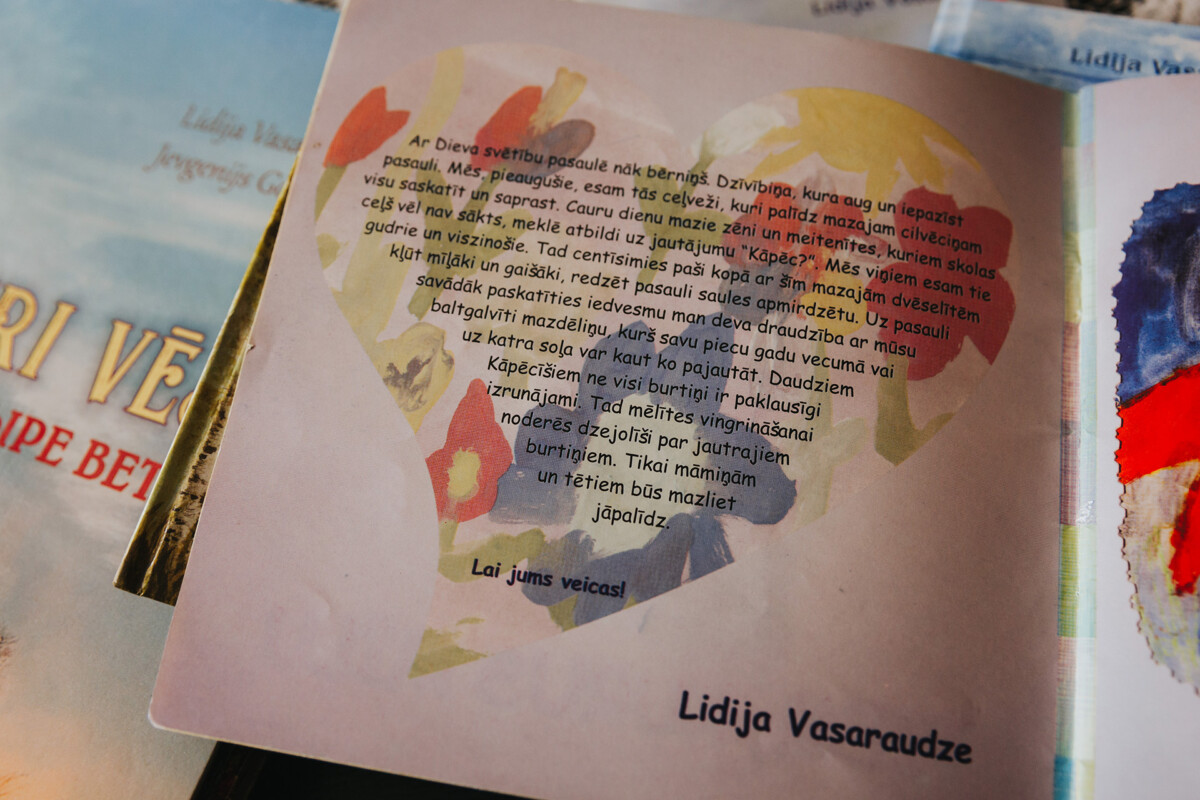 Lidija
Lidija Vas
Lidija Vasa
Jevgenijs G
RI VĒ
IPE BET
Ar Dieva svētību pasaulē nāk bērniņš. Dzīvībiņa, kura aug un iepazīst
pasauli. Mēs, pieaugušie, esam tās ceļveži, kuri palīdz mazajam cilvēciņam
visu saskatīt un saprast. Cauru dienu mazie zēni un meitenītes, kuriem skolas
ceļš vēl nav sākts, meklē atbildi uz jautājumu “Kāpēc?”. Mēs viņiem esam tie
gudrie un viszinošie. Tad centīsimies paši kopā ar šīm mazajām dvēselītēm
kļūt mīļāki un gaišāki, redzēt pasauli saules apmirdzētu. Uz pasauli
savādāk paskatīties iedvesmu man deva draudzība ar mūsu
baltgalvīti mazdēliņu, kurš savu piecu gadu vecumā vai
uz katra soļa var kaut ko pajautāt. Daudziem
Kāpēcīšiem ne visi burtiņi ir paklausīgi
izrunājami. Tad mēlītes vingrināšanai
noderēs dzejolīši par jautrajiem
burtiņiem. Tikai māmiņām
un tētiem būs mazliet
jāpalīdz.
Lai jums veicas!
Lidija Vasaraudze